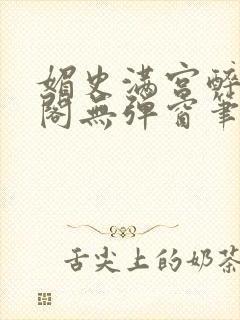 媚史满宫醉
阁无弹窗笔
舌尖上的奶茶